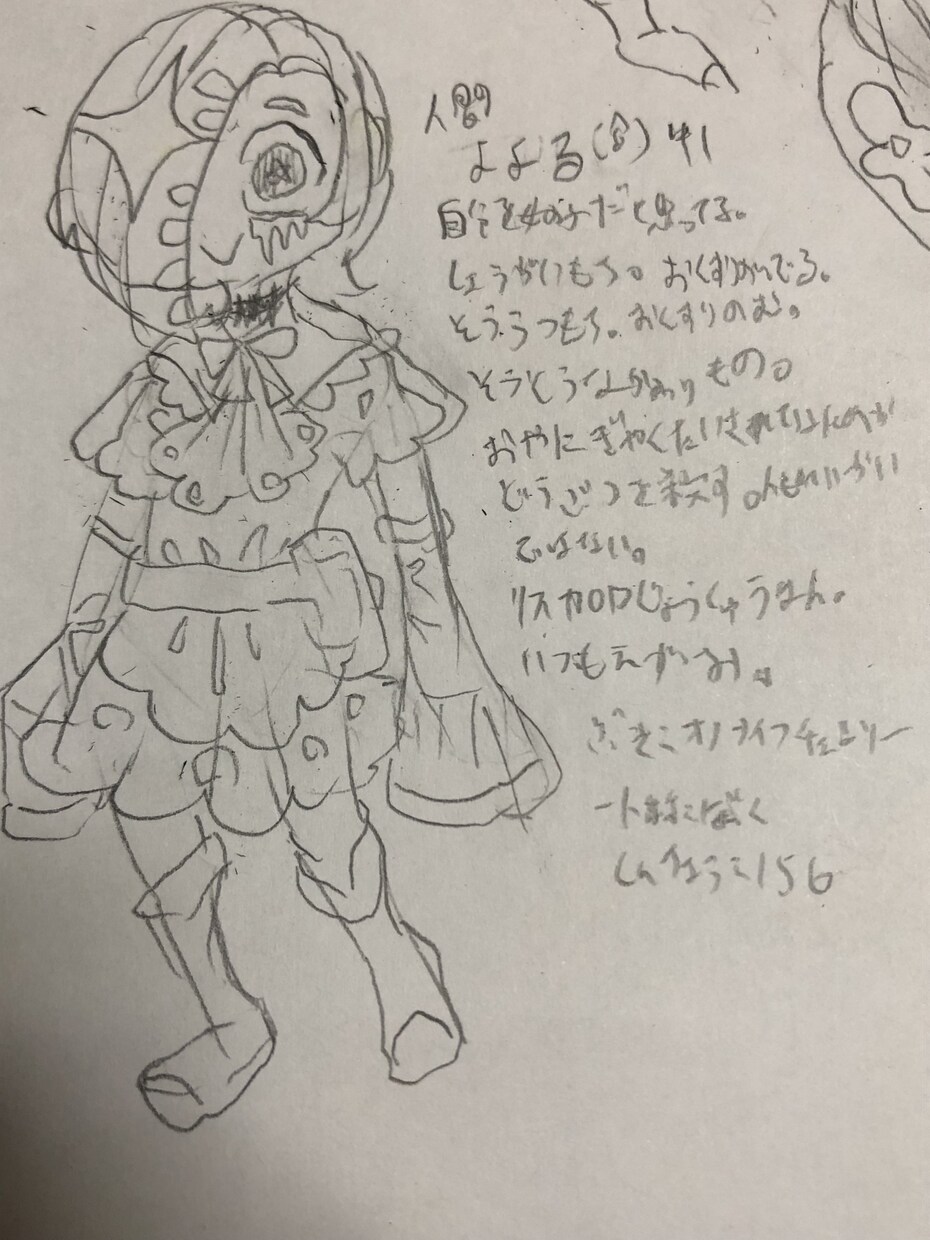 人間
よよる(令) 41
自分を女の子だと思ってる。
しょうがいもち。おくすりがでる。
そううつもち。おくすりのむ。
そうとうなかわりもの。
おやにぎゃくたいされて
どうぶつを殺す。
ではない。
リスカ ODじょうしゅうはん。
いつもえがお。
一人称ぼく
しんちょう156